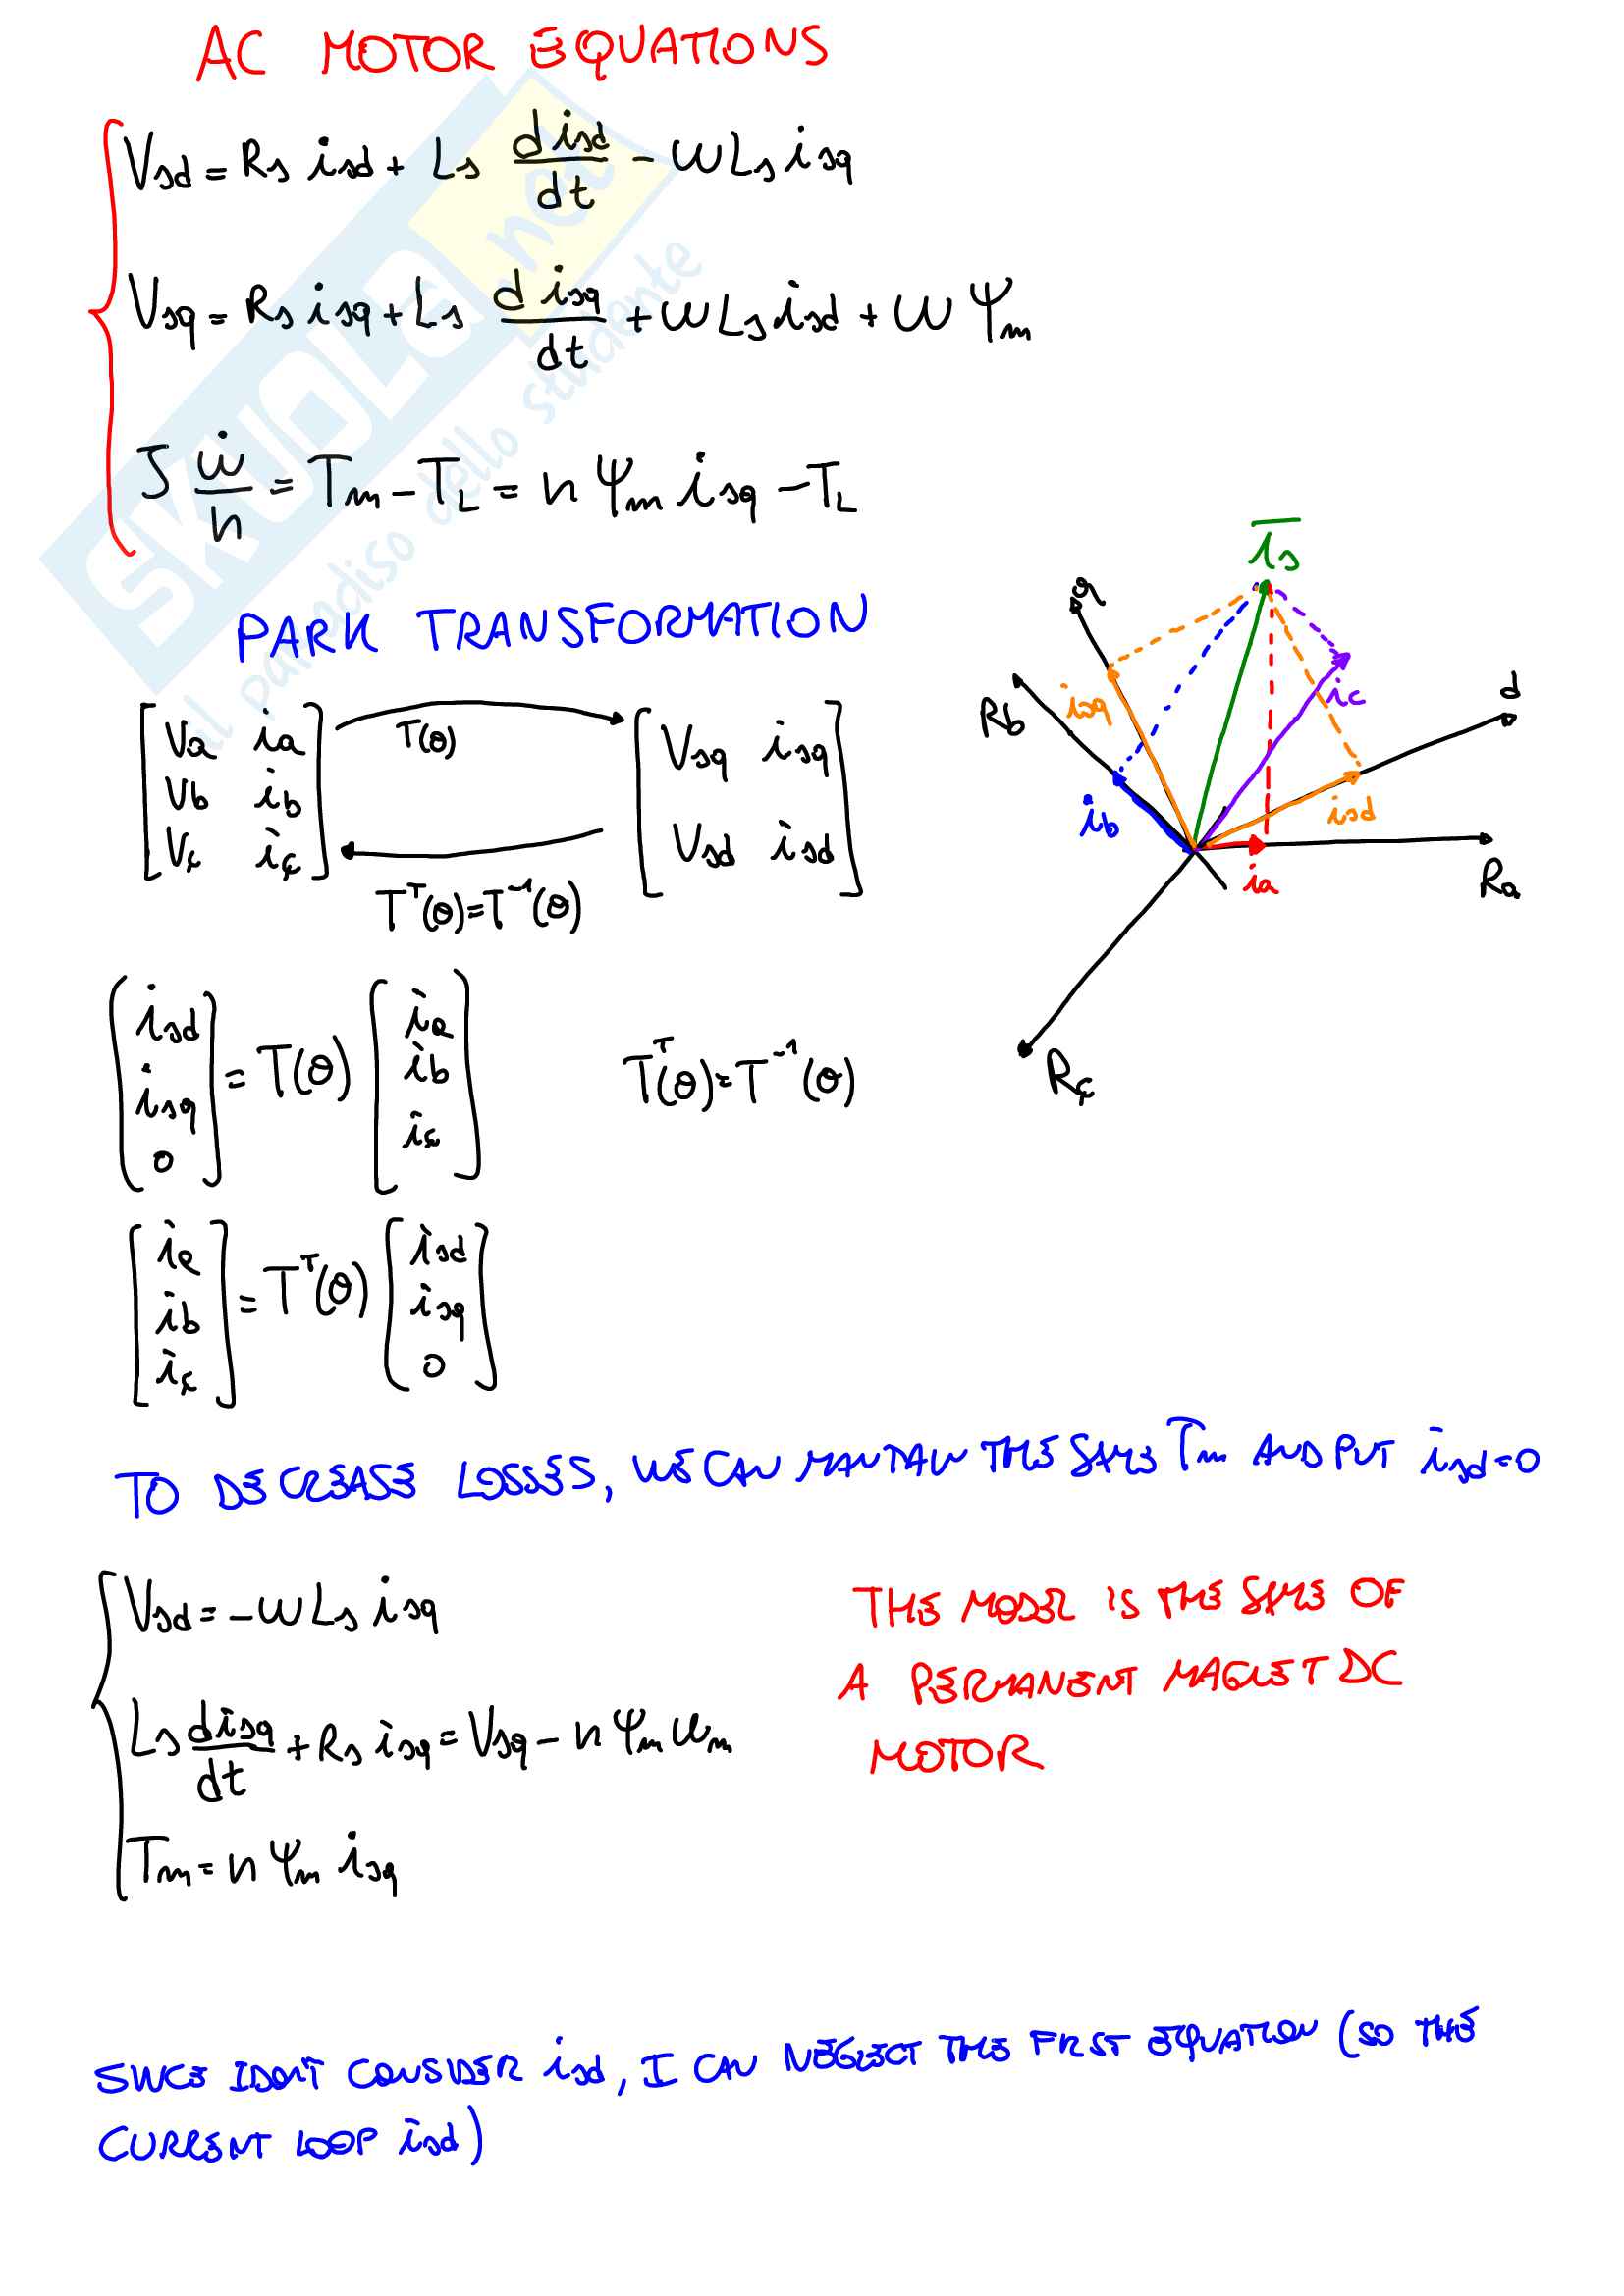 AC MOTOR EQUATIONS
Vsd = Rs isd + Ls d isd/dt - ωLs isq
Vsq = Rs isq + Ls d isq/dt + ωLs isd + ω Ψm
J ω̇/n = Tm - TL = n Ψm isq - TL
PARK TRANSFORMATION
[Va ia
Vb ib
Vc ic]
T(θ)
[Vsq isq
Vsd isd]
T^T(θ) = T^-1(θ)
is
q
d
Rb
isq
ic
ib
isd
ia
Ra
Rc
(isd
isq
0) = T(θ) [ia
ib
ic]
T^T(θ) = T^-1(θ)
[ia
ib
ic] = T^T(θ) [isd
isq
0]
TO DECREASE LOSSES, WE CAN MANTAIN THE SAME Tm AND PUT isd = 0
Vsd = -ωLs isq
Ls d isq/dt + Rs isq = Vsq - n Ψm ωm
Tm = n Ψm isq
THE MODEL IS THE SAME OF
A PERMANENT MAGNET DC
MOTOR
SINCE I DON'T CONSIDER isd, I CAN NEGLECT THE FIRST EQUATION (SO THE
CURRENT LOOP isd)
SKUOLA.net
al paradiso dello studente